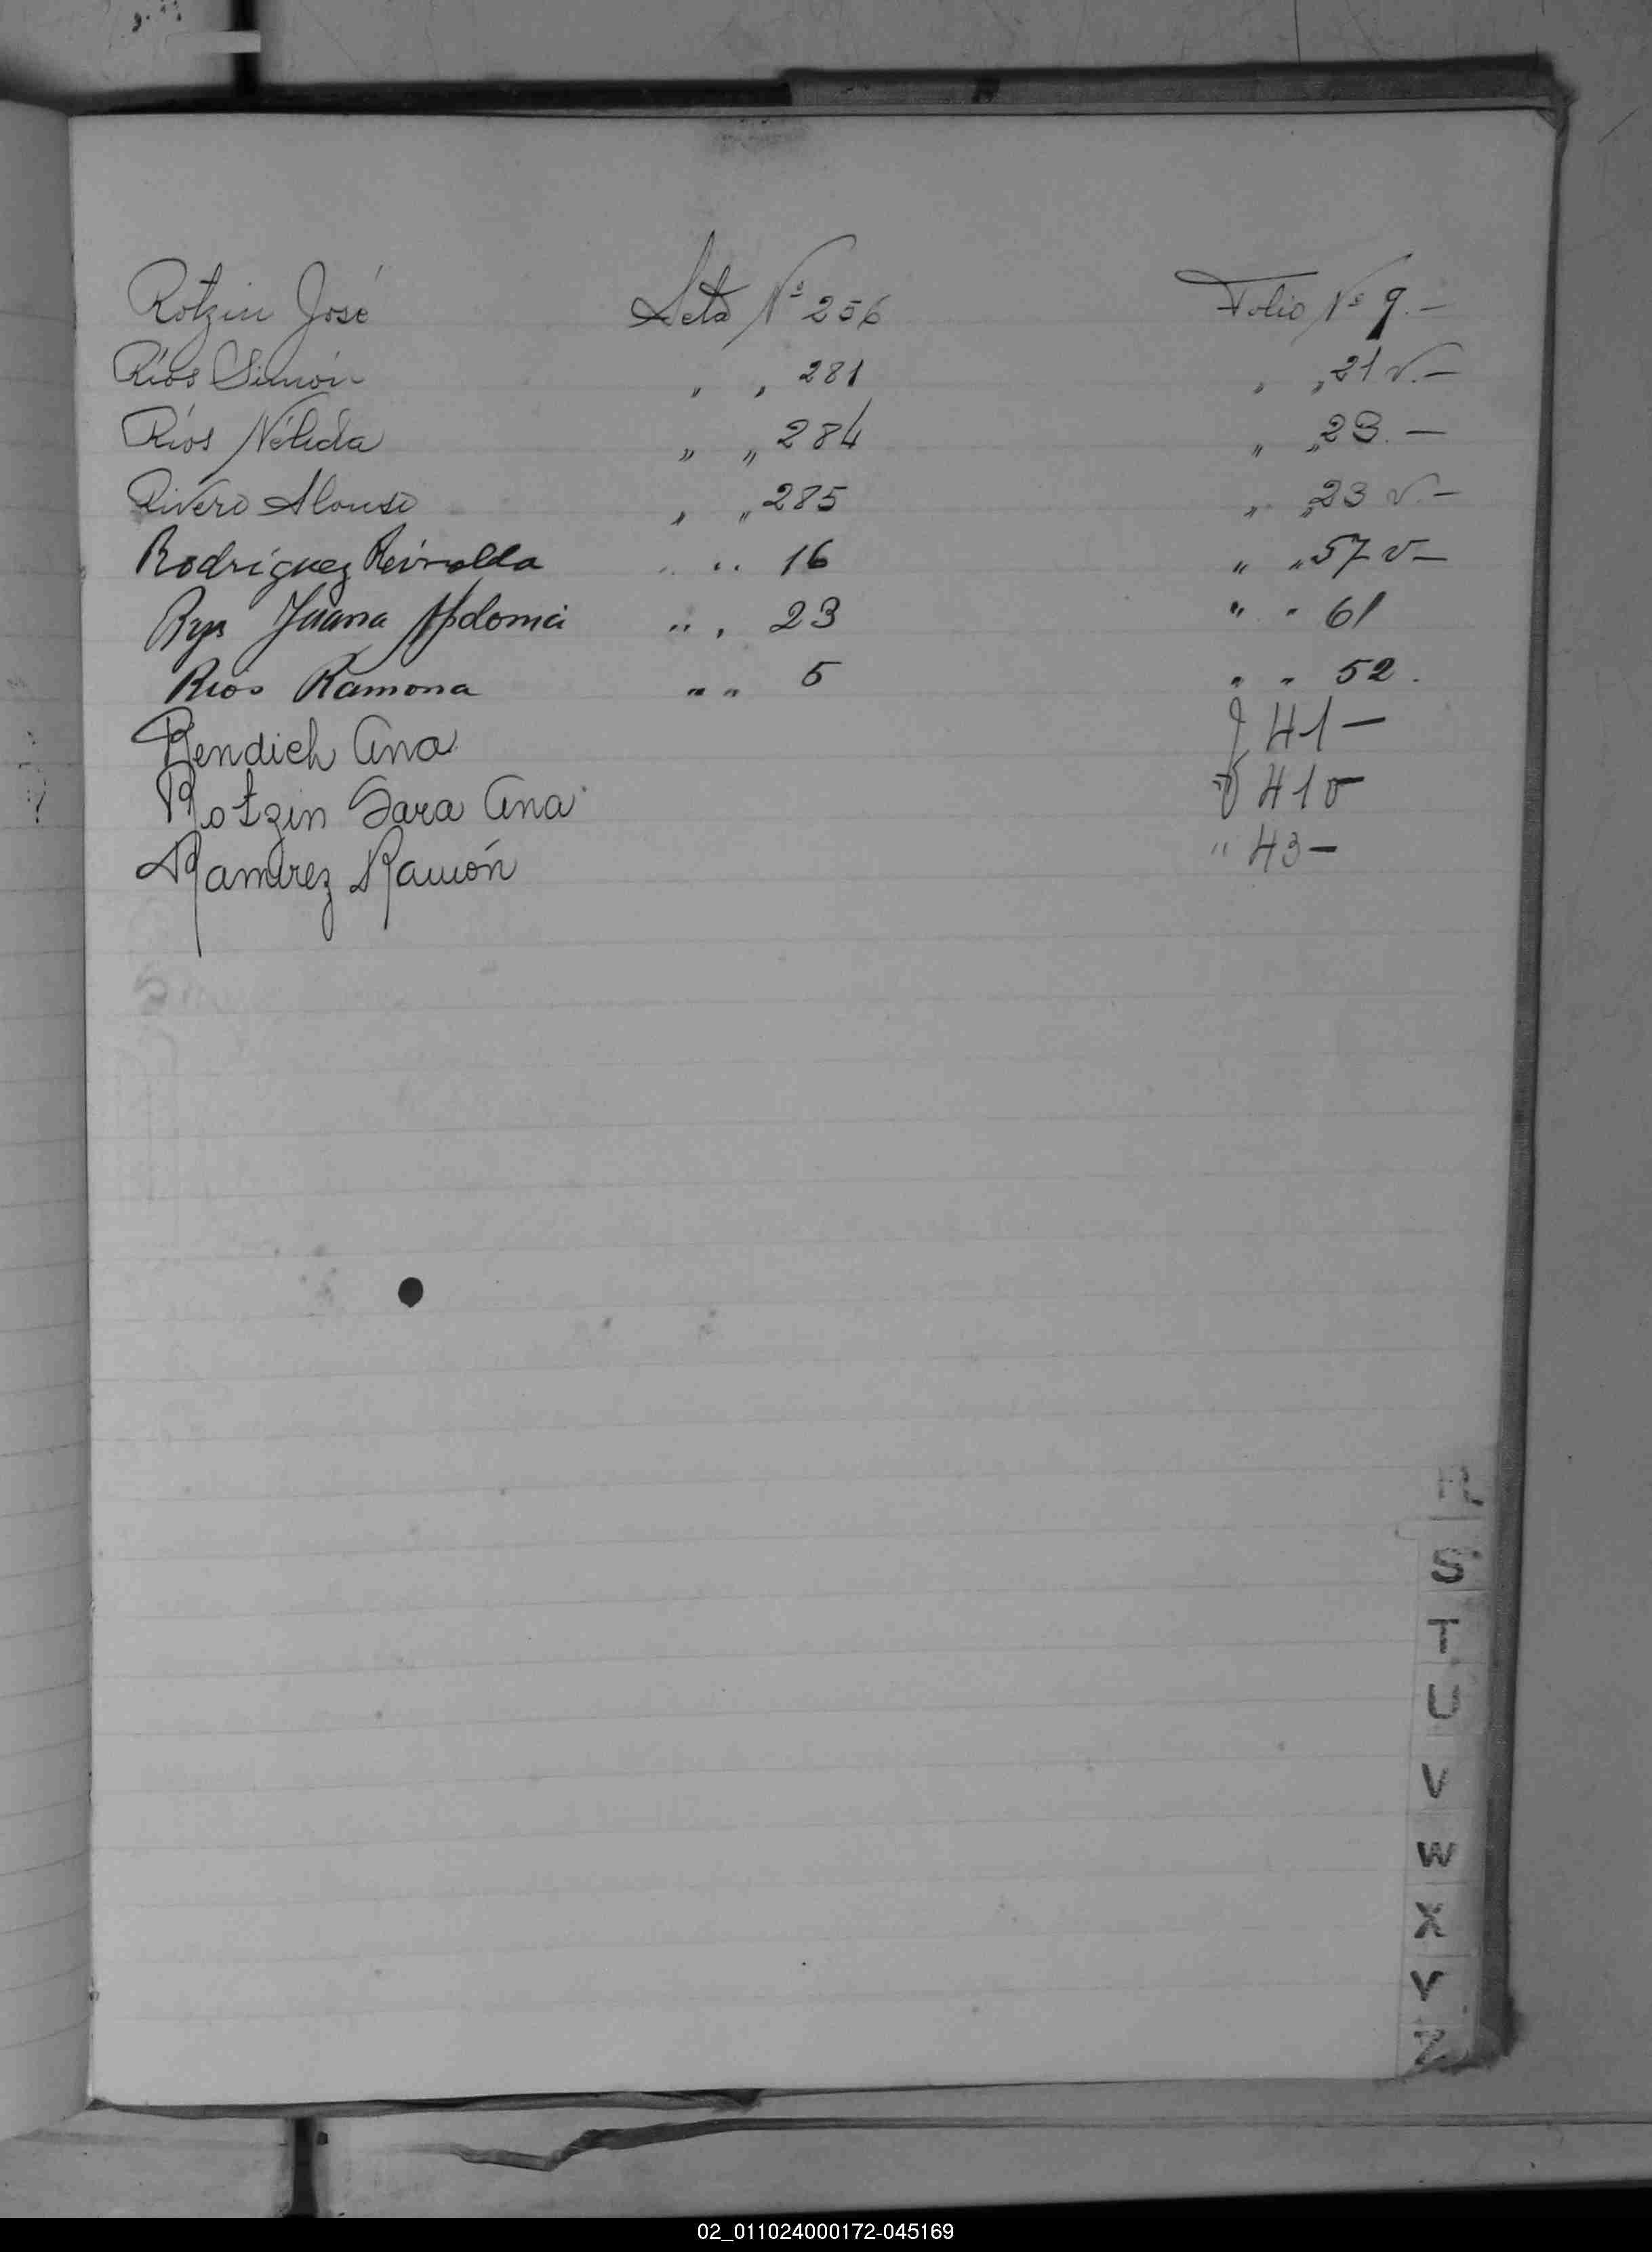 Rotzin José Acta Nº 256 Folio Nº 9.-
Ríos Simón " " 281 " " 21 v.-
Ríos Nélida " " 284 " " 23.-
Rivero Alonso " " 285 " " 23 v.-
Rodríguez " " 16 " " 57 v-
Juana " " 23 " " 61
Rios Ramona " " 5 " " 52.
Rendich Ana 41-
Rotzin Sara Ana 41 v-
Ramírez Ramón " 43-
R
S
T
U
V
W
X
Y
Z
02_011024000172-045169